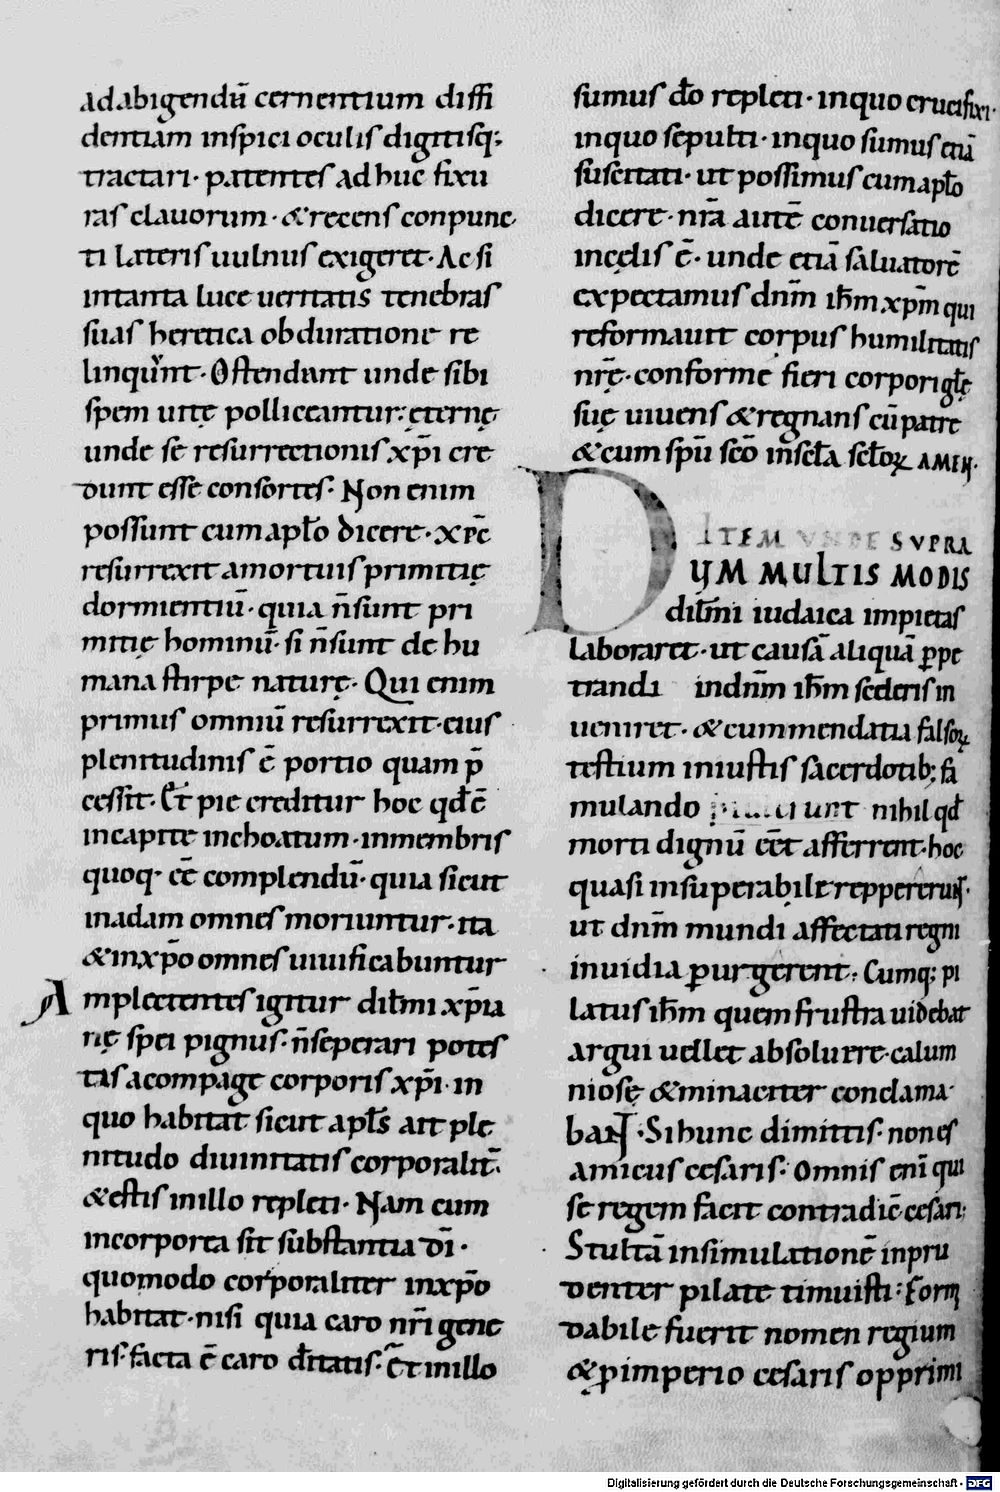 adabigendū cernentium diffi
dentiam inspici oculis digitisq;
tractari· patentes adhuc fixu
ras clauorum· & recens conpunc
ti lateris uulnus exigeret· Ac si
intanta luce ueritatis tenebras
suas heretica obduratione re
linquunt· Ostendant unde sibi
spem uitę polliceantur: ęternę
unde se resurrectionis xp̄i cre
dunt esse consortes· Non enim
possunt cum apło dicere· xp̄c
resurrexit amortuis primitię
dormientiū· quia n̄sunt pri
mitię hominū· si n̄sunt de hu
mana stirpe naturę· Qui enim
primus omniū resurrexit· eius
plenitudinis ē portio quam p̄
cessit· Et pie creditur hoc qđ ē
incapite inchoatum· inmembris
quoq· eē complendū· quia sicut
inadam omnes moriuntur· ita
& inxp̄o omnes uiuificabuntur
Amplectentes igitur dilm̄i xp̄ia
nę spei pignus· n̄seperari potes
tis acompage corporis xp̄i· in
quo habitat sicut apłs ait ple
nitudo diuinitatis corporalit̄·
& estis inillo repleti· Nam cum
incorporea sit substantia dī·
quomodo corporaliter inxp̄o
habitat· nisi quia caro nr̄i gene
ris· facta ē caro đitatis· Et inillo
sumus đo repleti· inquo crucifixi·
inquo sepulti· inquo sumus etiā
suscitati· ut possimus cum apło
dicere· nr̄a autē conuersatio
incęlis ē· unde etiā saluatorē
expectamus dnm̄ ihm̄ xpm̄ qui
reformauit corpus humilitatis
nr̄ę· conforme fieri corpori głę
suę uiuens & regnans cū patre
& cum spū scō insecła secłoꝝ AMEN·
ITEM UNDE SUPRA
DUM MULTIS MODIS
dilm̄i iudaica impietas
laboraret· ut causā aliquā ꝑpe
trandi indnm̄ ihm̄ sceleris in
ueniret· & cummendatia falsoꝝ
testium iniustis sacerdotib; fa
mulando nihil qđ
morti dignū eēt afferrent· hoc
quasi insuperabile reppererunt·
ut dnm̄ mundi affectati regni
inuidia ꝑurgerent: Cumq; pi
latus ihm̄ quem frustra uidebat
argui uellet absoluere· calum
niosę & minaciter conclama·
bant· Si hunc dimittis· non es
amicus cesaris· Omnis enī qui
se regem facit contradic̄ cesari:
Stultā insimulationē inpru
denter pilate timuisti: Form
dabile fuerit nomen regium
& ꝑ imperio cesaris opprimi
Digitalisierung gefördert durch die Deutsche Forschungsgemeinschaft - DFG